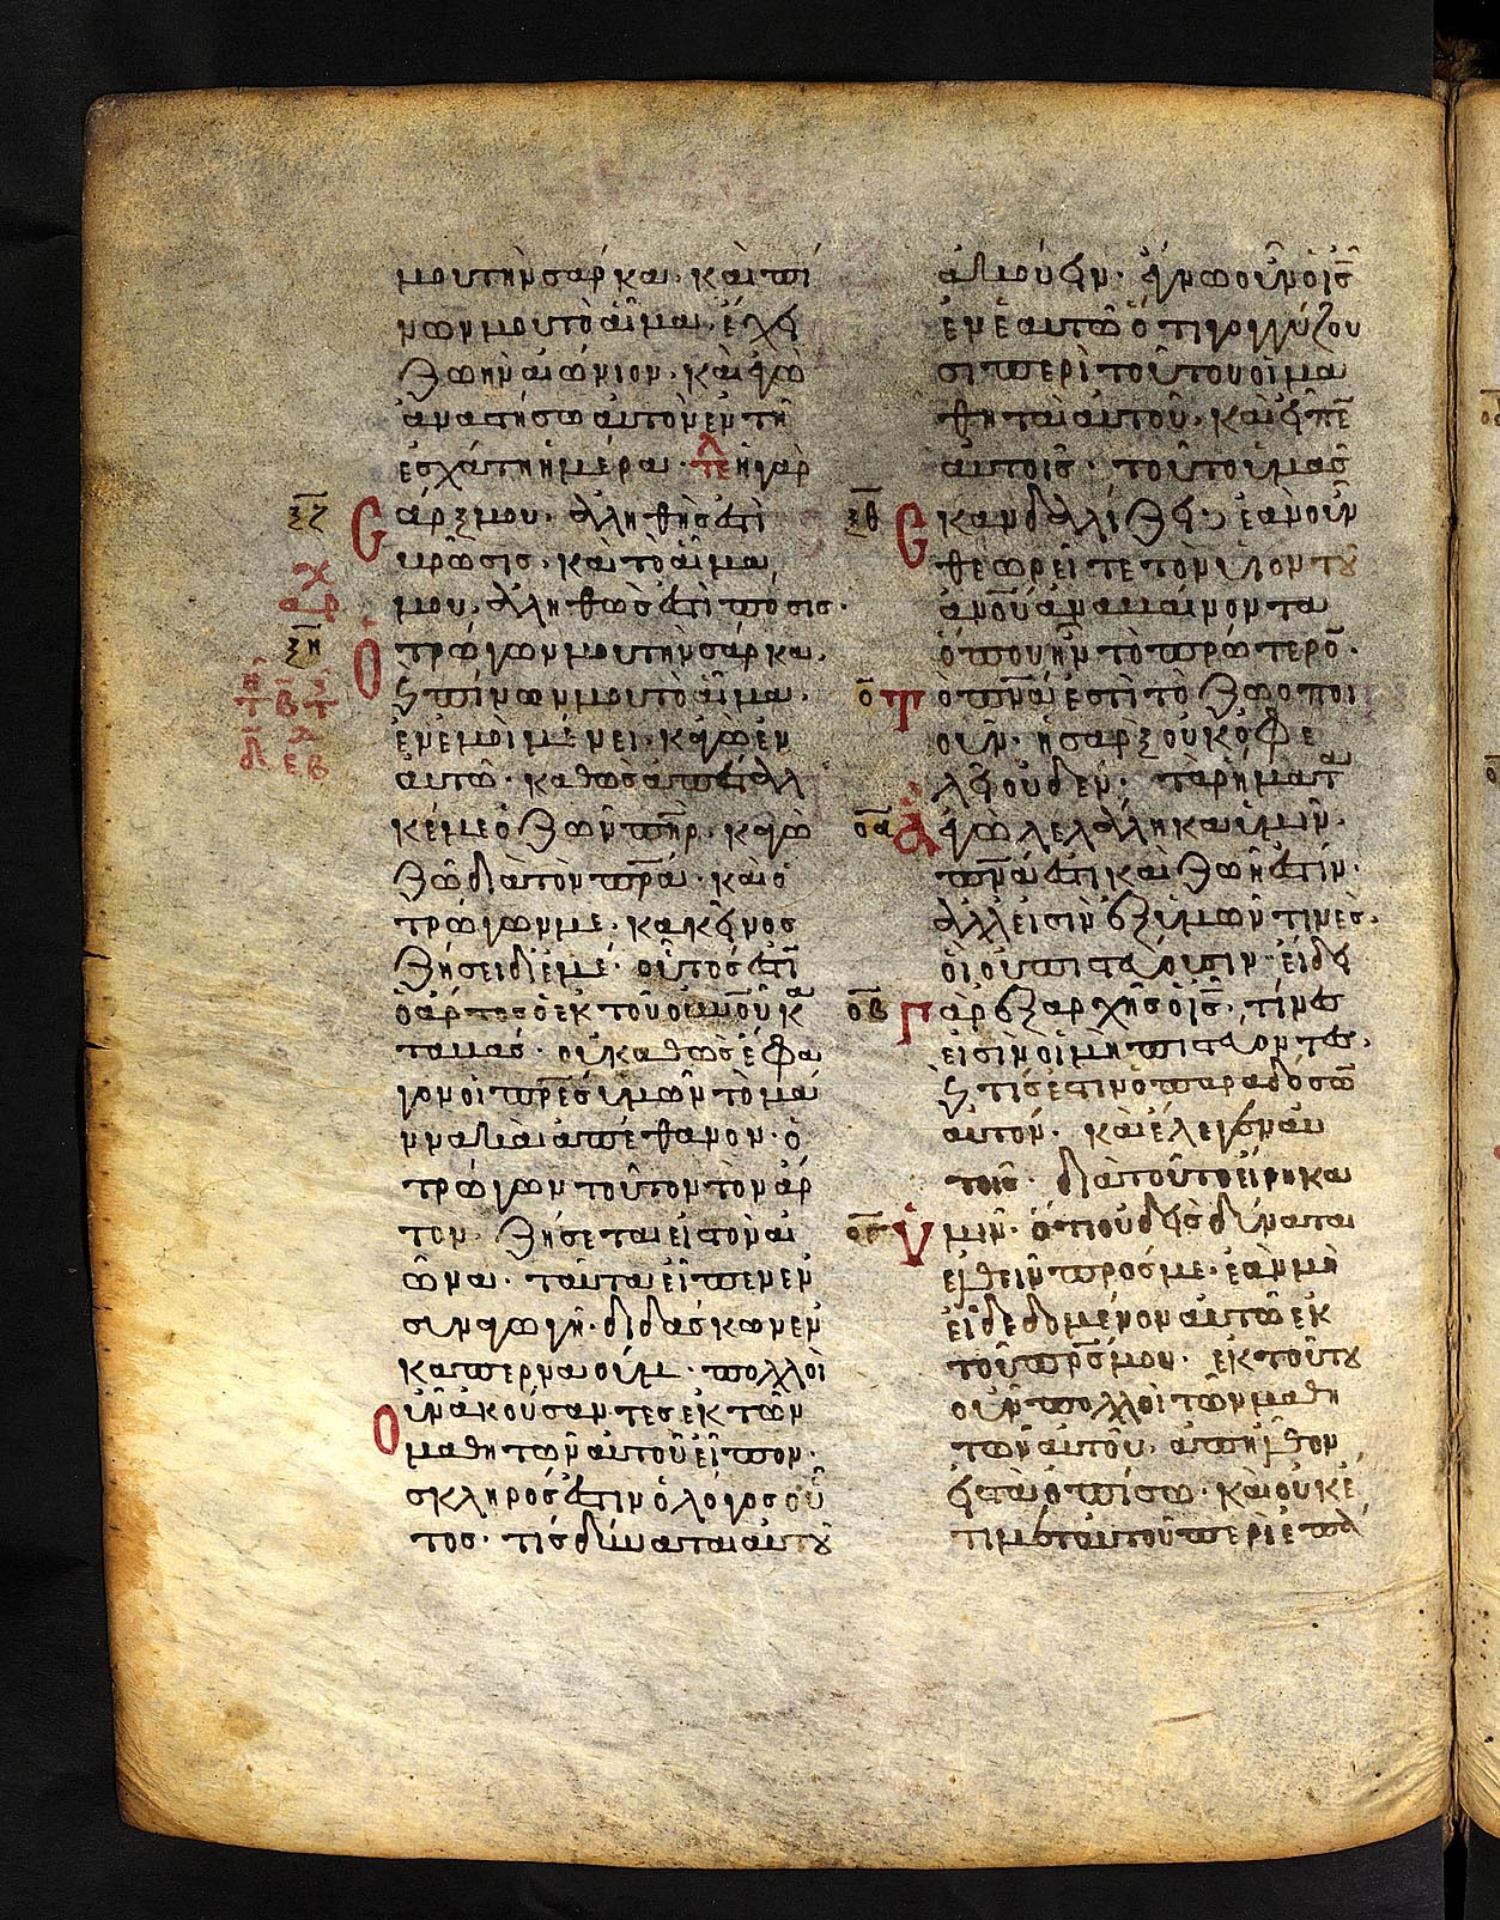 μου τὴν σάρκα· καὶ πί
νων μου τὸ αἷμα, ἔχει
ζωὴν αἰώνιον· καὶ ἐγὼ
ἀναστήσω αὐτὸν ἐν τῆ
ἐσχάτη ἡμέρα· τε λ ἡ γὰρ
ξζ σάρξ μου, ἀληθὴς ἐστὶ
βρῶσις· καὶ τὸ αἷμα
μου, ἀληθῶς ἐστὶ πόσις·
ξη Ο τρώγων μου τὴν σάρκα,
ϗ πίνων μου τὸ αἷμα·
ἐν ἐμοὶ μένει· κἀγὼ ἐν
αὐτῶ· καθὼς ἀπέστειλ
κέ με ὁ ζῶν πηρ· κἀγὼ
ζῶ διὰ τὸν πρα· καὶ ὁ
τρώγων με· κἀκεῖνος
ζήσει δι ἐμέ· οὗτός ἐστῖ
ὁ ἄρτος ὁ ἐκ τοῦ οὐνοῦ κα
ταβάς· οὐ καθὼς ἔφα
γον οἱ πρες ὑμῶν τὸ μά
ννα καὶ ἀπέθανον· ὁ
τρώγων τοῦτον τὸν ἄρ
τον· ζήσεται εἰς τὸν αἰ
ῶνα· ταῦτα εἶπεν ἐν
συναγωγῆ· διδάσκων ἐν
καπερναούμ· πολλοὶ
Ο ὖν ἀκούσαντες ἐκ τῶν
μαθητῶν αὐτοῦ εἶπον·
σκληρός ἐστιν ὁ λόγος οὗ
τος· τίς δύναται αὐτȣ
ἀκούειν· εἰδὼς οὖν ὁ ις
ἐν ἑαυτῶ ὅτι γογγύζου
σι περὶ τούτου οἱ μα
θηταὶ αὐτοῦ· καὶ εἶπε
αὐτοῖς· τοῦτο ὑμᾶς
ξθ Ϲ κανδαλίζει; ἐὰν οὖν
θεωρεῖτε τὸν υἱον τȣ
ἀνοῦ ἀναβαίνοντα
ὅπου ἦν τὸ πρότερο̅·
ο Τ ὸ πνα ἐστὶ τὸ ζωοποι
οῦν· ἡ σὰρξ οὐκ ὠφε
λεῖ οὐδέν· τὰ ρήματα
οα Ἃ ἐγὼ λελάληκα ὑμῖν·
πνα ἐστὶ καὶ ζωή ἐστιν·
ἀλλ εἰσὶν ἐξ ὑμῶν τινὲς·
οἳ οὐ πιστεύουσιν· εἴδει
οβ Γ ὰρ ἐξ αρχῆς ὁ ις· τίνες
εἰσὶν οἱ μὴ πιστεύοντες·
ϗ τίς ἐστιν ὁ παραδόσω
αὐτόν· καὶ ἔλεγεν αὐ
τοῖς· διὰ τοῦτο εἴρηκα
ογ Ὑ μῖν· ὅτι οὐδεὶς δύναται
ἐλθεῖν πρός με· ἐὰν μὴ
εἶ δεδομένον αὐτῶ ἐκ
τοῦ πρς μου· ἐκ τούτȣ
οὖν πολλοὶ τῶν μαθη
τῶν αὐτοῦ, ἀπῆλθον
εἰς τὰ ὀπίσω· καὶ οὐκέ
τι μετ αὐτοῦ περιεπά